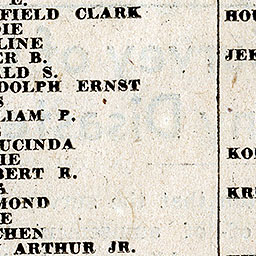 FIELD CLARK
DIE
LINE
ER B.
ALD S.
DOLPH ERNST
S
LIAM P.
UCINDA
IE
BERT R.
MOND
E
CHEN
ARTHUR JR.
HOU
JEK
KO
KR